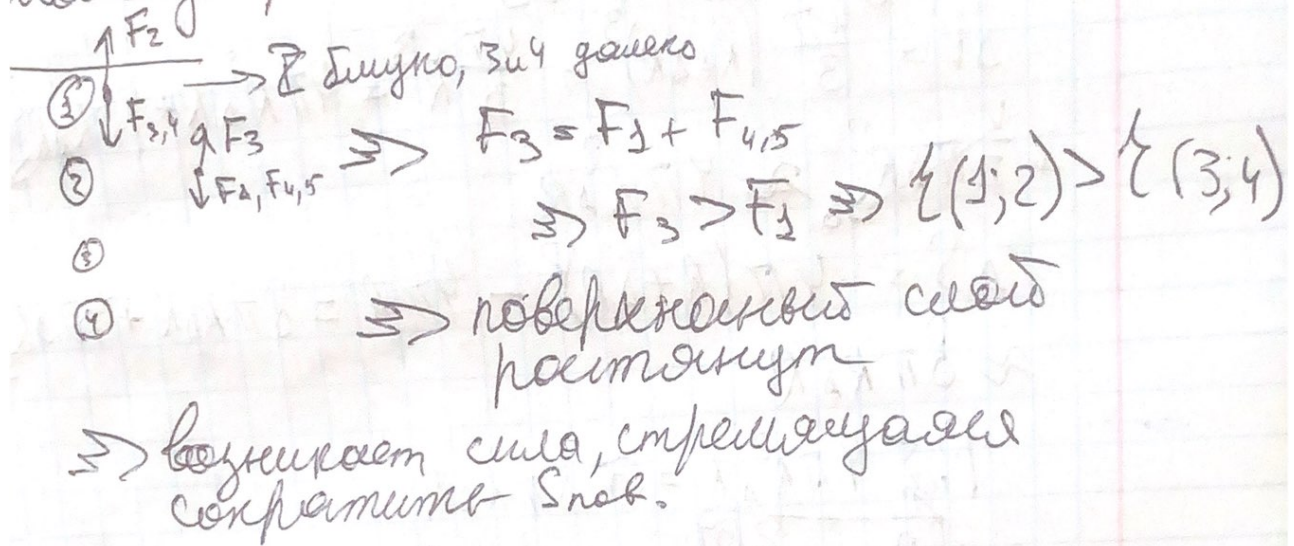 F₂
① → 2 близко, 3 и 4 далеко
F₃,₄ F₃ ⇒ F₃ = F₁ + F₄,₅
② F₁, F₄,₅ ⇒ F₃ > F₁ ⇒ r(1;2) > r(3;4)
③
④ ⇒ поверхносный слой
ростянут
⇒ возникает сила, стремящаяся
сократить Sпов.